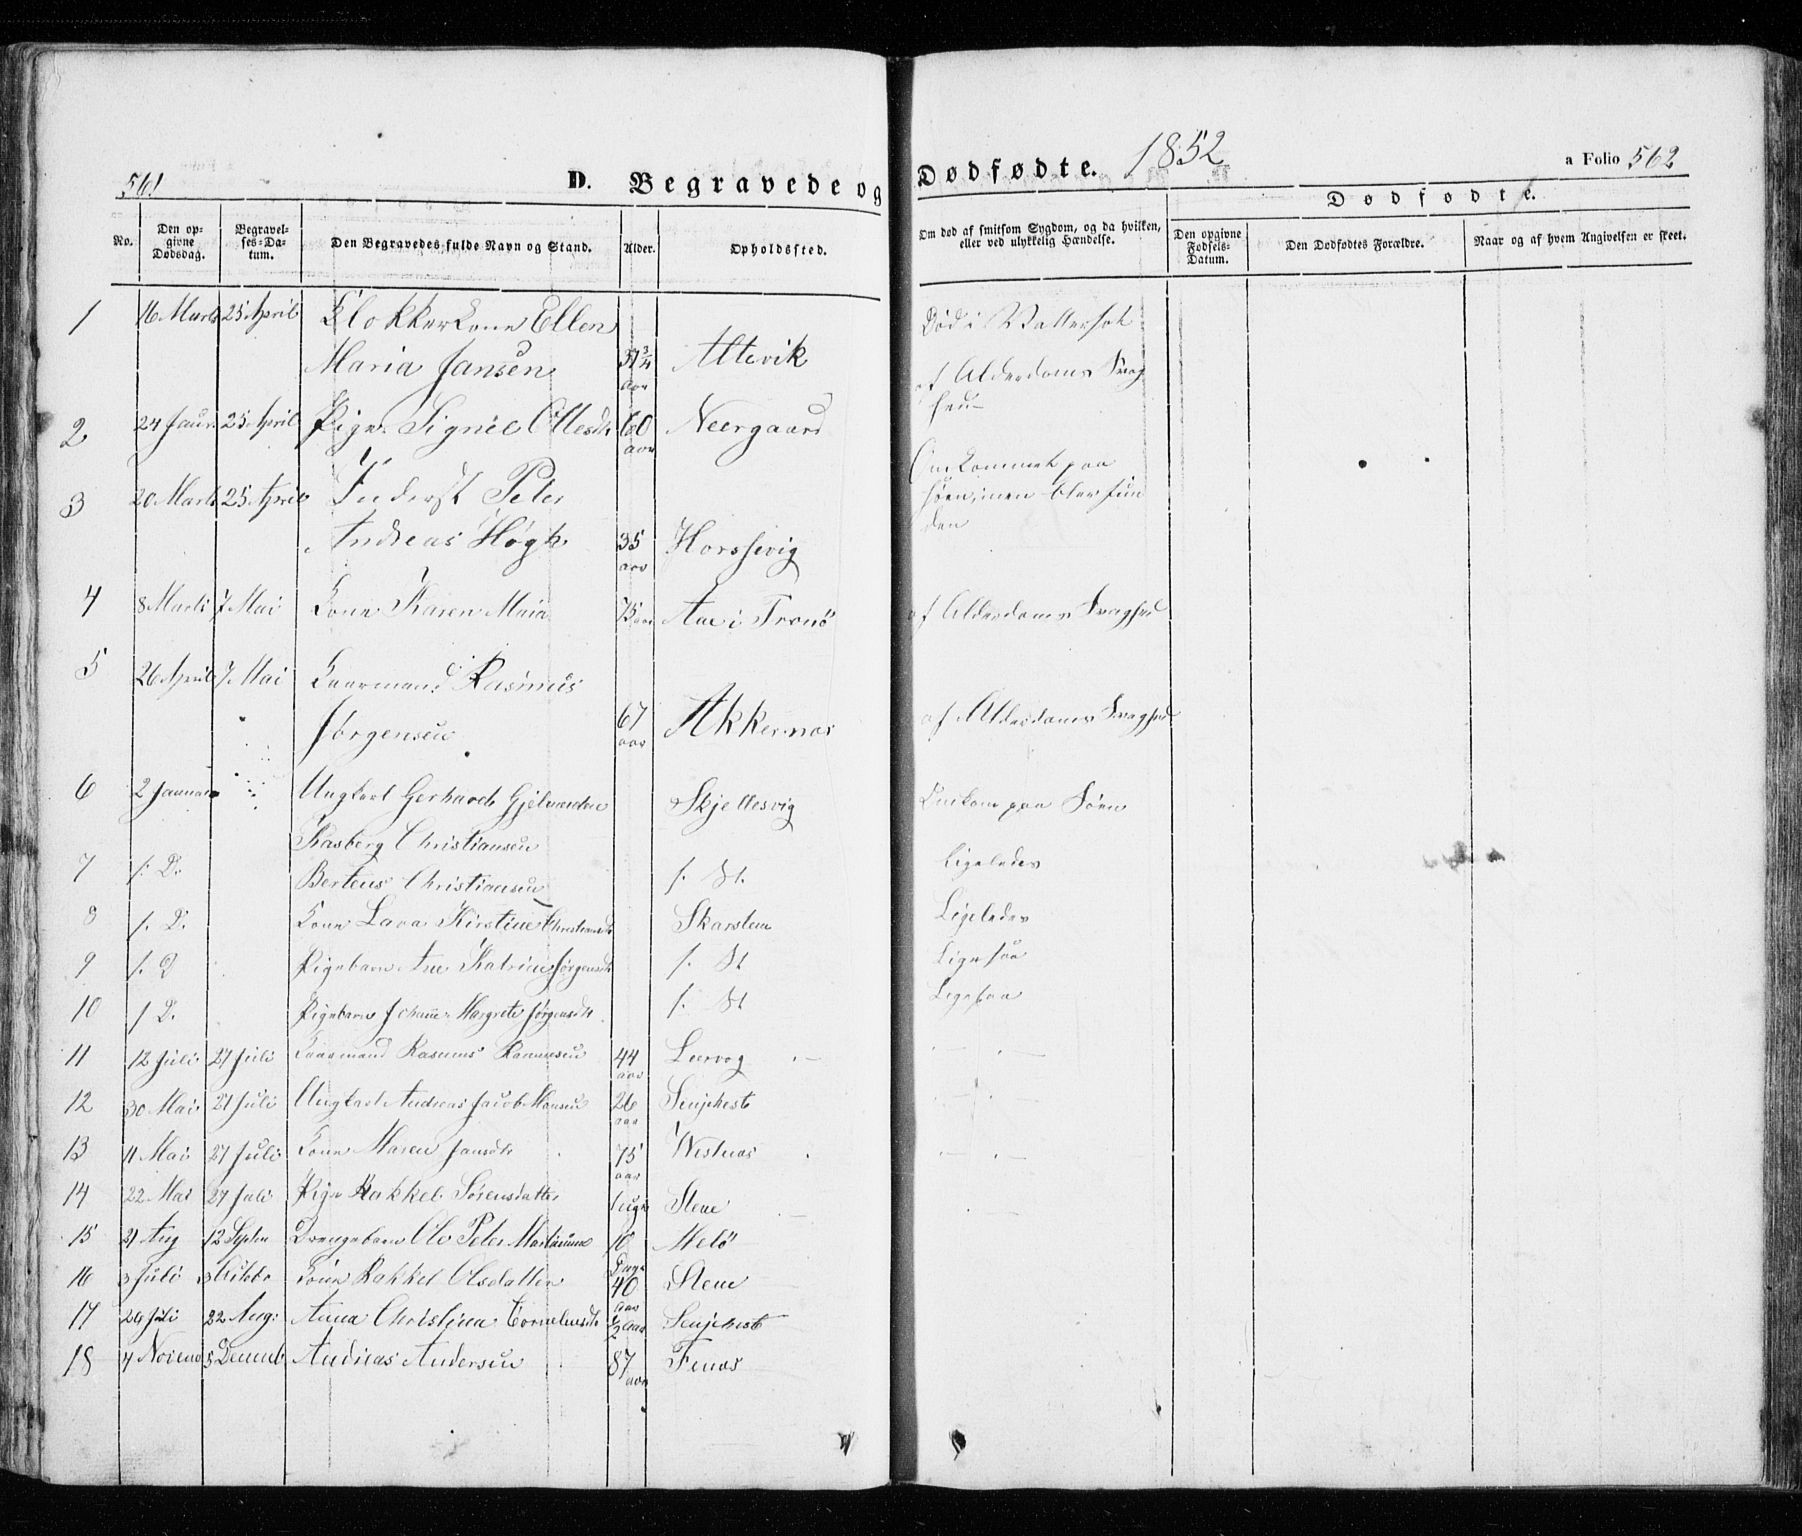 561
D. Begravede og
Dødfødte. 1852
a Folio 562
No.
Den opgivne Dødsdag.
Begravelses-Datum.
Den Begravedes fulde Navn og Stand.
Alder.
Opholdssted.
Om død af smitsom Sygdom, og da hvilken, eller ved ulykkelig Hændelse.
Dødfødte.
Den opgivne Fødsels-Datum.
Den Dødfødtes Forældre.
Naar og af hvem Angivelsen er skeet.
1 16 Marts 25 April Klokkerkone Ellen
Maria Jansen 37 3/4 aar Altevik
Død i Vattersot
2 24 Janur 25 April Pige Signée Ollesdtr 60 aar Neergaard
af Alderdoms Svaghed
3 20 Marts 25 April Inderst Peter
Andreas Høgh 35 aar Horssevig
Omkommet paa
Søen, men blev funden
4 8 Marts 7 Mai Kone Karen Maria 75 aar Aae i Tranö af Alderdoms Svaghed
5 26 April 7 Mai Kaarmand Rasmus
Jørgensen 67 aar Akkernæs af Alderdoms Svaghed
6 2 Januar Ungkarl Gerhard Skjellesvig Omkom paa Söen
Rasberg Christiansen
7 f. D. Berteus Christiansen f. St. Ligeledes
8 f. D. Kone Lava Kirstine Christiansdtr Skarsten Ligeledes
9 f. D Pigebarn Ane Katrine Jørgensdtr f. St Ligesaa
10 f D. Pigebarn Johanne Margrete Jørgensdtr. f. St Ligesaa
11 12 Juli 27 Juli Kaarmand Rasmus 44 aar Leervog
12 30 Mai 27 Juli Ungkarl Andreas Jacob Hansen 26 aar Senjehest
13 11 Mai 27 Juli Kone Maren Jansdtr 75 aar Vestnæs
14 22 Mai 27 Juli Pige Rakkel Sörensdatter 1 uge Stene
15 31 Aug 12 Septbr Drengebarn Ole Peter 10 Dage Melö
16 3 Juli 3 Octobr Kone Rakkel Olsdatter 40 aar Stene
17 24 Juli 22 Aug: Anna Christina Corneliusdtr 1/2 aar Senjehest
18 4 Novemb 5 Decemb Andreas Andersen 87 aar Finnæs